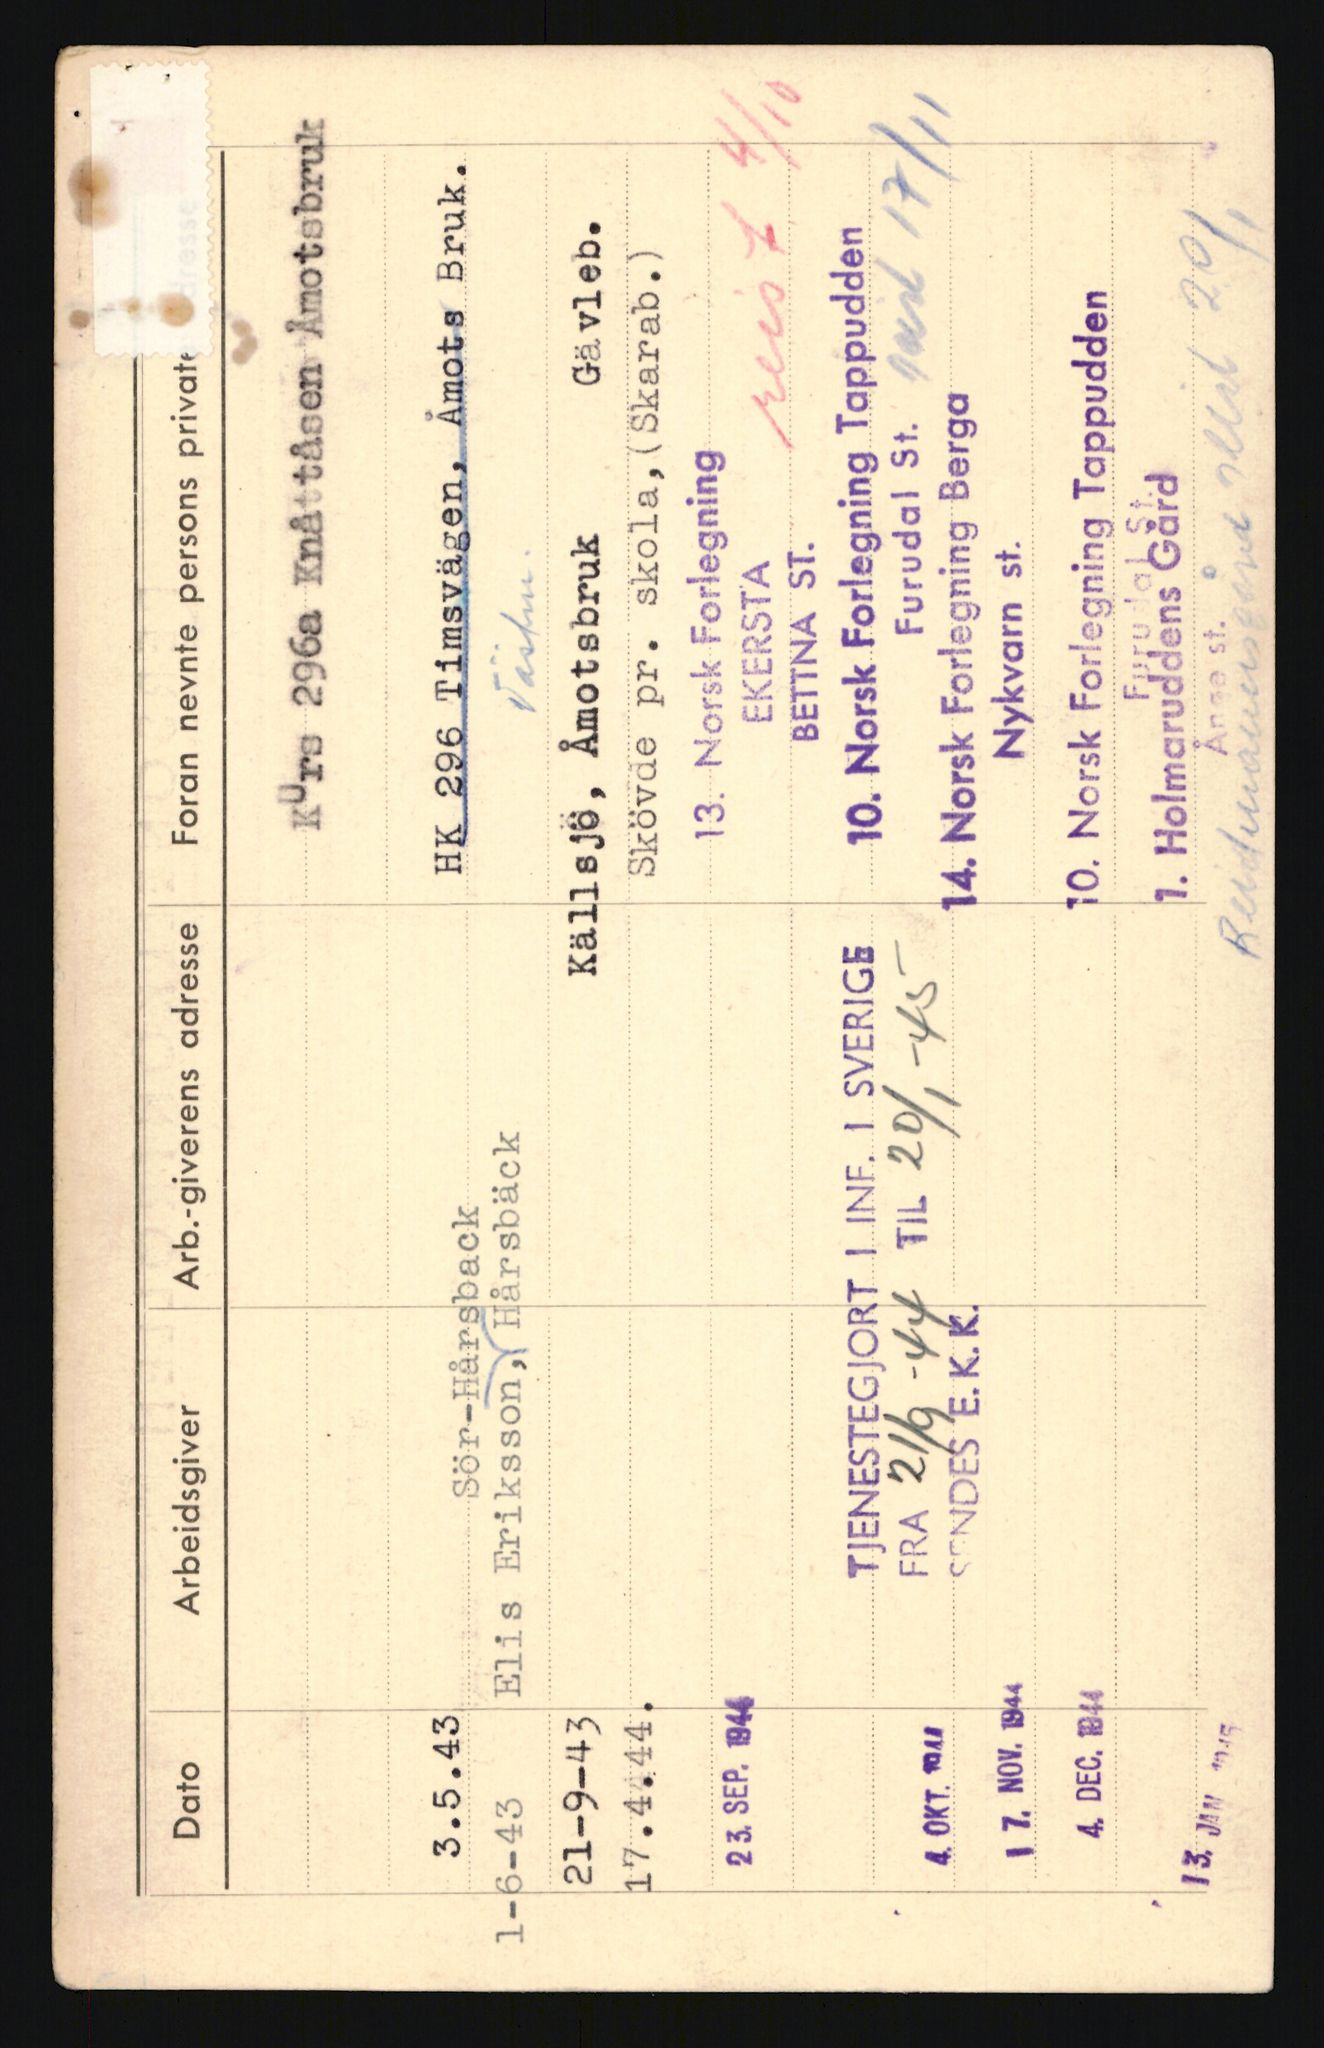 Dato Arbeidsgiver Arb.-giverens adresse Foran nevnte persons private
Kurs 296a Knåttåsen Åmotsbruk
3.5.43 Sör-Hårsback HK 296 Timsvägen, Åmots Bruk.
1-6-43 Elis Eriksson, Hårsbäck
21-9-43 Källsjö, Åmotsbruk Gävleb.
17.4.44. Skövde pr. skola, (Skarab.)
23. SEP. 1944 13. Norsk Forlegning
EKERSTA
BETTNA ST. reist 4/10
TJENESTEGJORT I INF. I SVERIGE 10. Norsk Forlegning Tappudden
FRA 21/9-44 TIL 20/1-45 Furudal St. reist 17/11
4. OKT. 1944 SENDES E.K.K. 14. Norsk Forlegning Berga
17. NOV. 1944 Nykvarn st.
4. DEC. 1944 10. Norsk Forlegning Tappudden
Furudal St.
1. Holmaruddens Gård
13. JAN 1945 Ånge st.
20/1